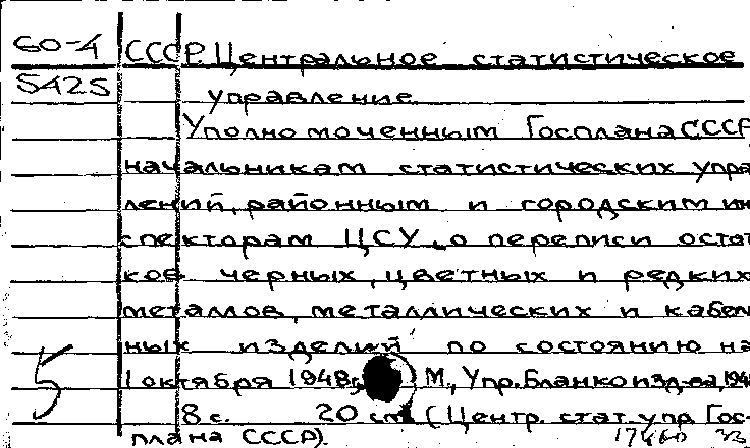 60-4 СССР. Центральное статистическое
5425 управление.
Уполномоченным Госплана СССР,
начальникам статистических упра
лений, районным и городским ин
спекторам ЦСУ, о переписи остат
ков черных, цветных и редких
металлов, металлических и кабель
ных изделий по состоянию на
5 1 октября 1948г. М., Упр. Бланкоизд-ва, 194
8 с. 20 см. (Центр. стат. упр. Гос-
плана СССР).